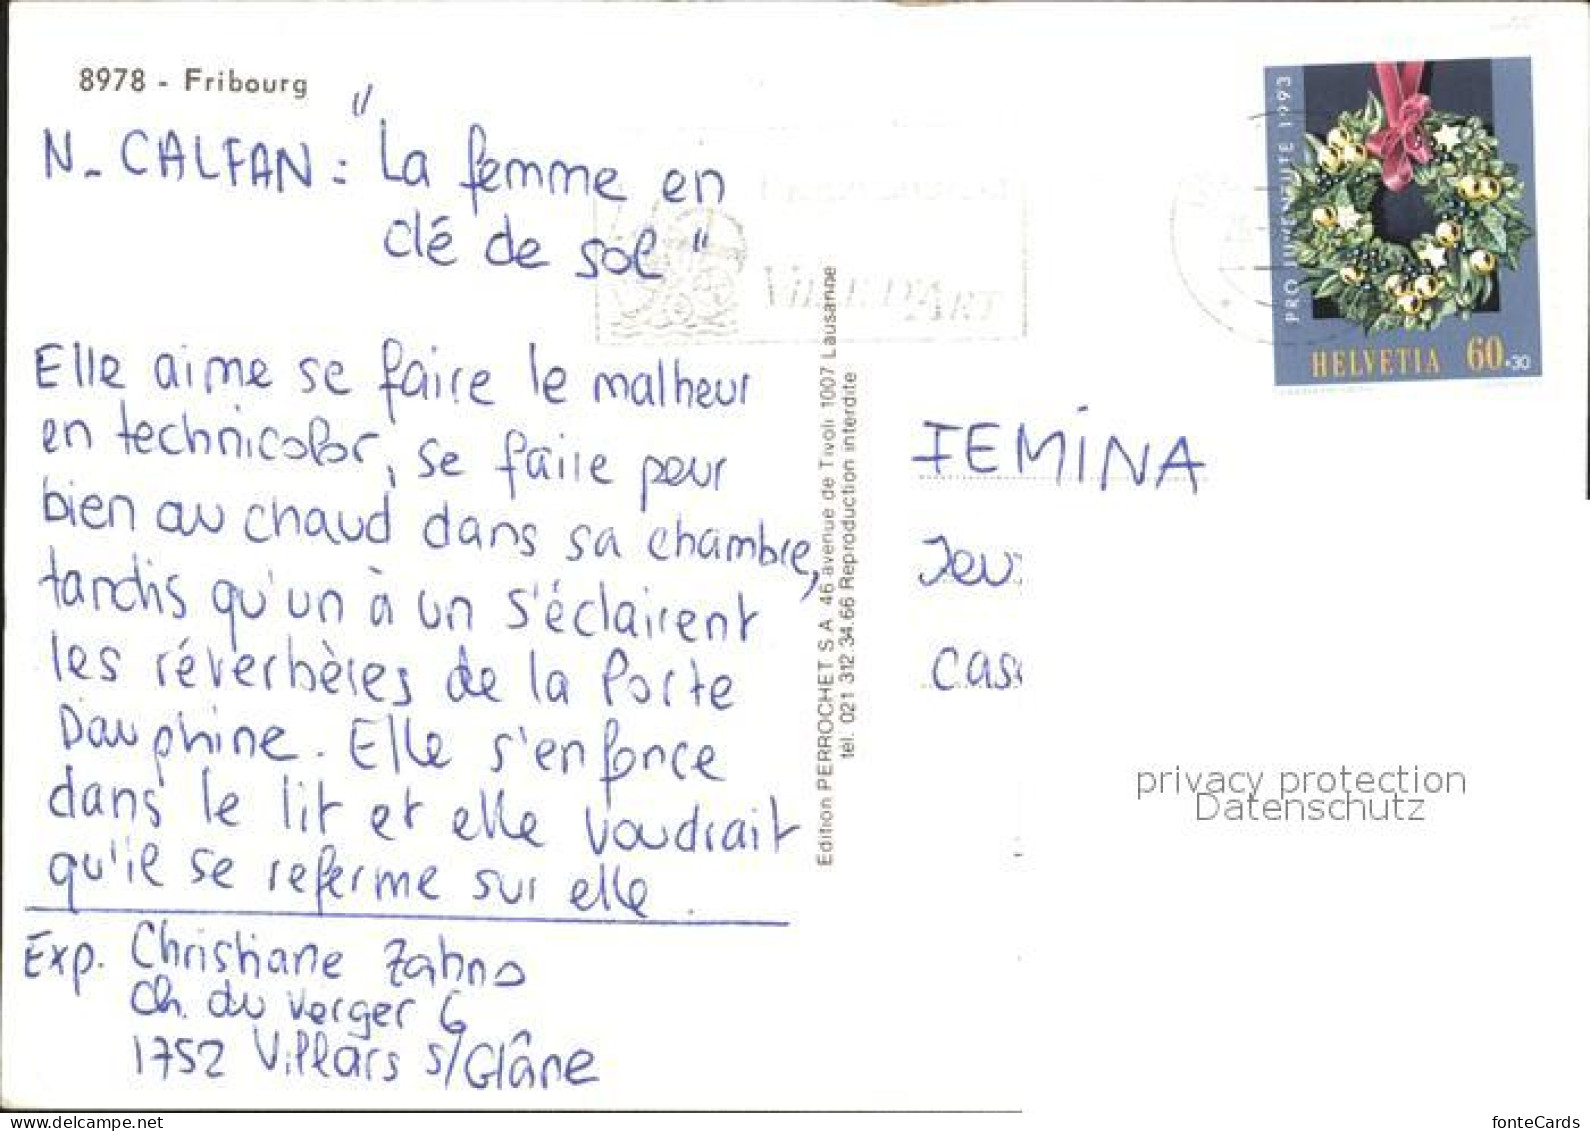 8978 - Fribourg
N_ CALFAN : "La femme en
clé de sol"
Elle aime se faire le malheur
en technicolor, se faire peur
bien au chaud dans sa chambre,
tandis qu'un à un s'éclairent
les réverbères de la Porte
Dauphine. Elle s'enfonce
dans le lit et elle voudrait
qu'il se referme sur elle.
Exp. Christiane Zahno
Ch. du Verger 6
1752 Villars s/Glâne
Edition PERROCHET S A 46 avenue de Tivoli 1007 Lausanne
tél. 021 312.34.66 Reproduction interdite
VILLE D'ART
PRO JUVENTUTE 1993
HELVETIA 60+30
FEMINA
Jeu
Cas
privacy protection
Datenschutz
delcampe.net
fonteCards